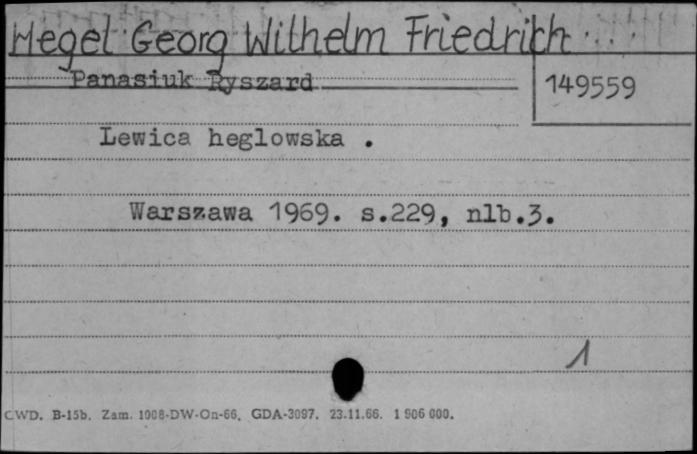 Hegel Georg Wilhelm Friedrich
Panasiuk Ryszard
149559
Lewica heglowska .
Warszawa 1969. s.229, nlb.3.
1
CWD. B-15b. Zam. 1908-DW-On-66. GDA-3097. 23.11.66. 1 906 000.